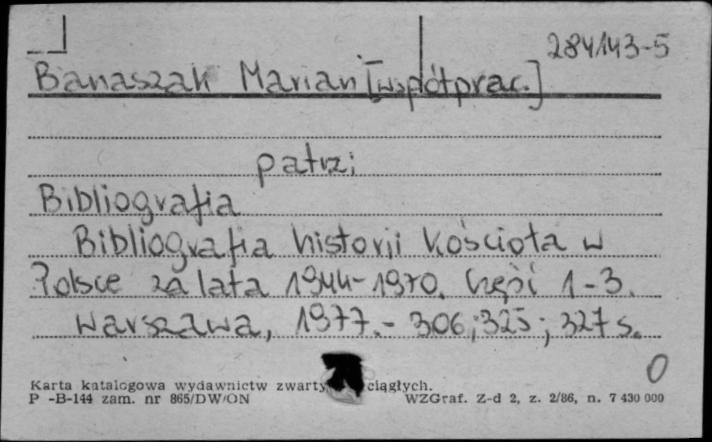 284143-5
Banaszak Marian [współprac.]
patrz:
Bibliografia
Bibliografia historii Kościoła w
Polsce za lata 1944-1970. Części 1-3.
Warszawa, 1977.- 306; 325; 327 s.
0
Karta katalogowa wydawnictw zwarty ciągłych.
P -B-144 zam. nr 865/DW/ON WZGraf. Z-d 2, z. 2/86, n. 7 430 000